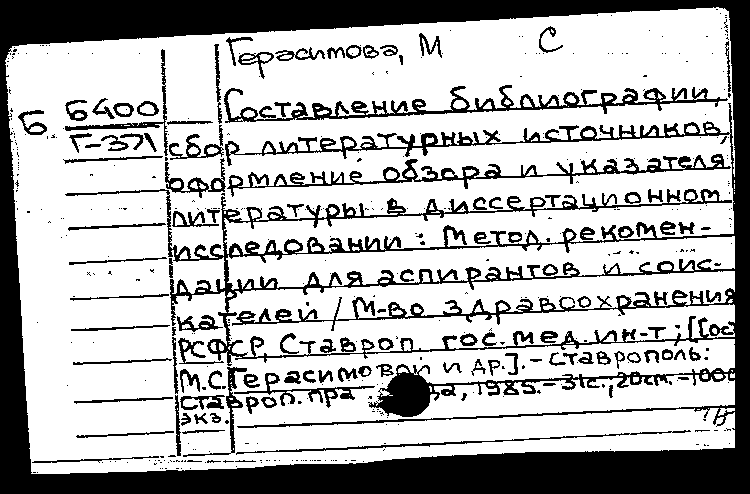 Герасимова, М С
Б Б400
Г-371
Составление библиографии,
сбор литературных источников,
оформление обзора и указателя
литературы в диссертационном
исследовании : Метод. рекомен-
дации для аспирантов и соис-
кателей / М-во здравоохранения
РСФСР, Ставроп. гос. мед. ин-т; [Сос
М.С.Герасимовой и др.]. - Ставрополь:
Ставроп. пра да, 1985. - 31с.; 20см. - 1000
экз.